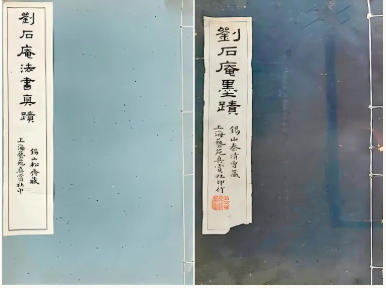 劉石庵法書真蹟
錫山松齋藏
上海藝苑真賞社印
劉石庵墨蹟
錫山秦清曾藏
上海藝苑真賞社印行